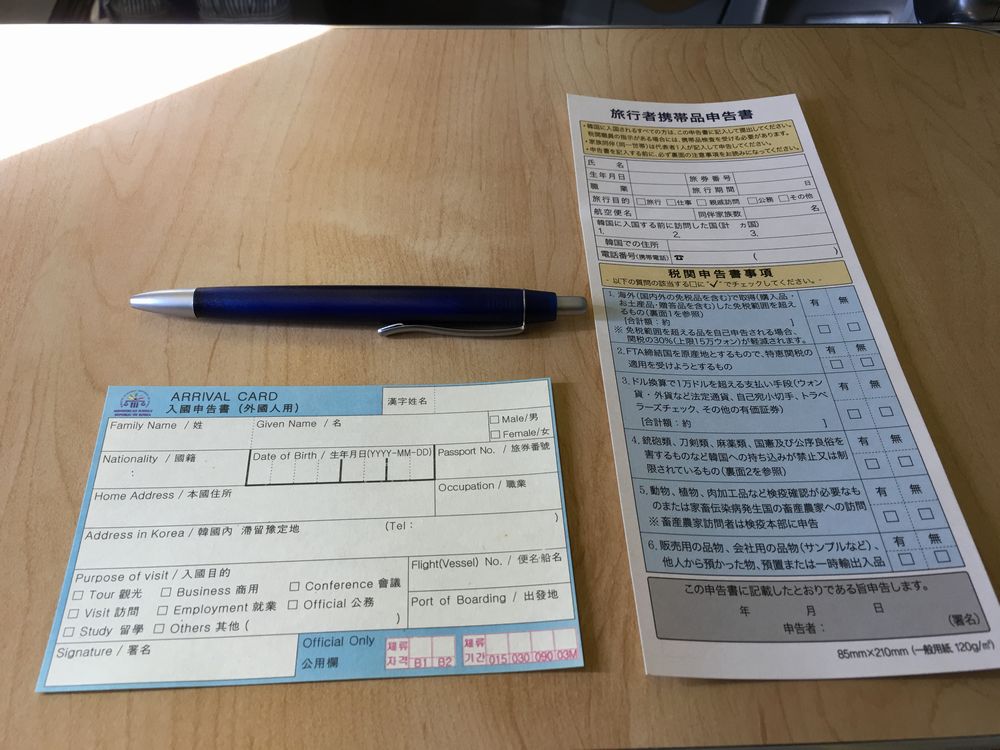 ARRIVAL CARD
入國申告書 (外國人用)
漢字姓名
Family Name / 姓
Given Name / 名
□ Male/男
□ Female/女
Nationality / 國籍
Date of Birth / 生年月日(YYYY-MM-DD)
Passport No. / 旅券番號
Home Address / 本國住所
Occupation / 職業
Address in Korea / 韓國內 滯留豫定地
(Tel : )
Purpose of visit / 入國目的
□ Tour 觀光 □ Business 商用 □ Conference 會議
□ Visit 訪問 □ Employment 就業 □ Official 公務
□ Study 留學 □ Others 其他 ( )
Flight(Vessel) No. / 便名·船名
Port of Boarding / 出發地
Signature / 署名
Official Only
公用欄
체류
자격 B1 B2
체류
기간 015 030 090 03M
旅行者携帯品申告書
・韓国に入国されるすべての方は、この申告書に記入して提出してください。
税関職員の指示がある場合には、携帯品検査を受ける必要があります。
・家族同伴(同一世帯)は代表者1人が記入して申告してください。
・申告書を記入する前に、必ず裏面の注意事項をお読みになってください。
氏 名
生年月日 旅券番号
職 業 旅行期間 日
旅行目的 □旅行 □仕事 □親戚訪問 □公務 □その他
航空便名 同伴家族数 名
韓国に入国する前に訪問した国(計 ヵ国)
1. 2. 3.
韓国での住所
電話番号(携帯電話) ☎ ( )
税関申告書事項
- 以下の質問の該当する□に"✓"でチェックしてください。 -
1. 海外(国内外の免税品を含む)で取得(購入品・
お土産品・贈答品を含む)した免税範囲を超え
るもの(裏面1を参照)
[合計額:約 ]
※ 免税範囲を超える品を自己申告される場合、
関税の30%(上限15万ウォン)が軽減されます。
有 無
□ □
2. FTA締結国を原産地とするもので、特恵関税の
適用を受けようとするもの
有 無
□ □
3. ドル換算で1万ドルを超える支払い手段(ウォン
貨・外貨など法定通貨、自己宛小切手、トラベ
ラーズチェック、その他の有価証券)
[合計額:約 ]
有 無
□ □
4. 銃砲類、刀剣類、麻薬類、国憲及び公序良俗を
害するものなど韓国への持ち込みが禁止又は制
限されているもの(裏面2を参照)
有 無
□ □
5. 動物、植物、肉加工品など検疫確認が必要なも
のまたは家畜伝染病発生国の畜産農家への訪問
※ 畜産農家訪問者は検疫本部に申告
有 無
□ □
6. 販売用の品物、会社用の品物(サンプルなど)、
他人から預かった物、預置または一時輸出入品
有 無
□ □
この申告書に記載したとおりである旨申告します。
年 月 日
申告者: (署名)
85mm×210mm (一般用紙 120g/㎡)